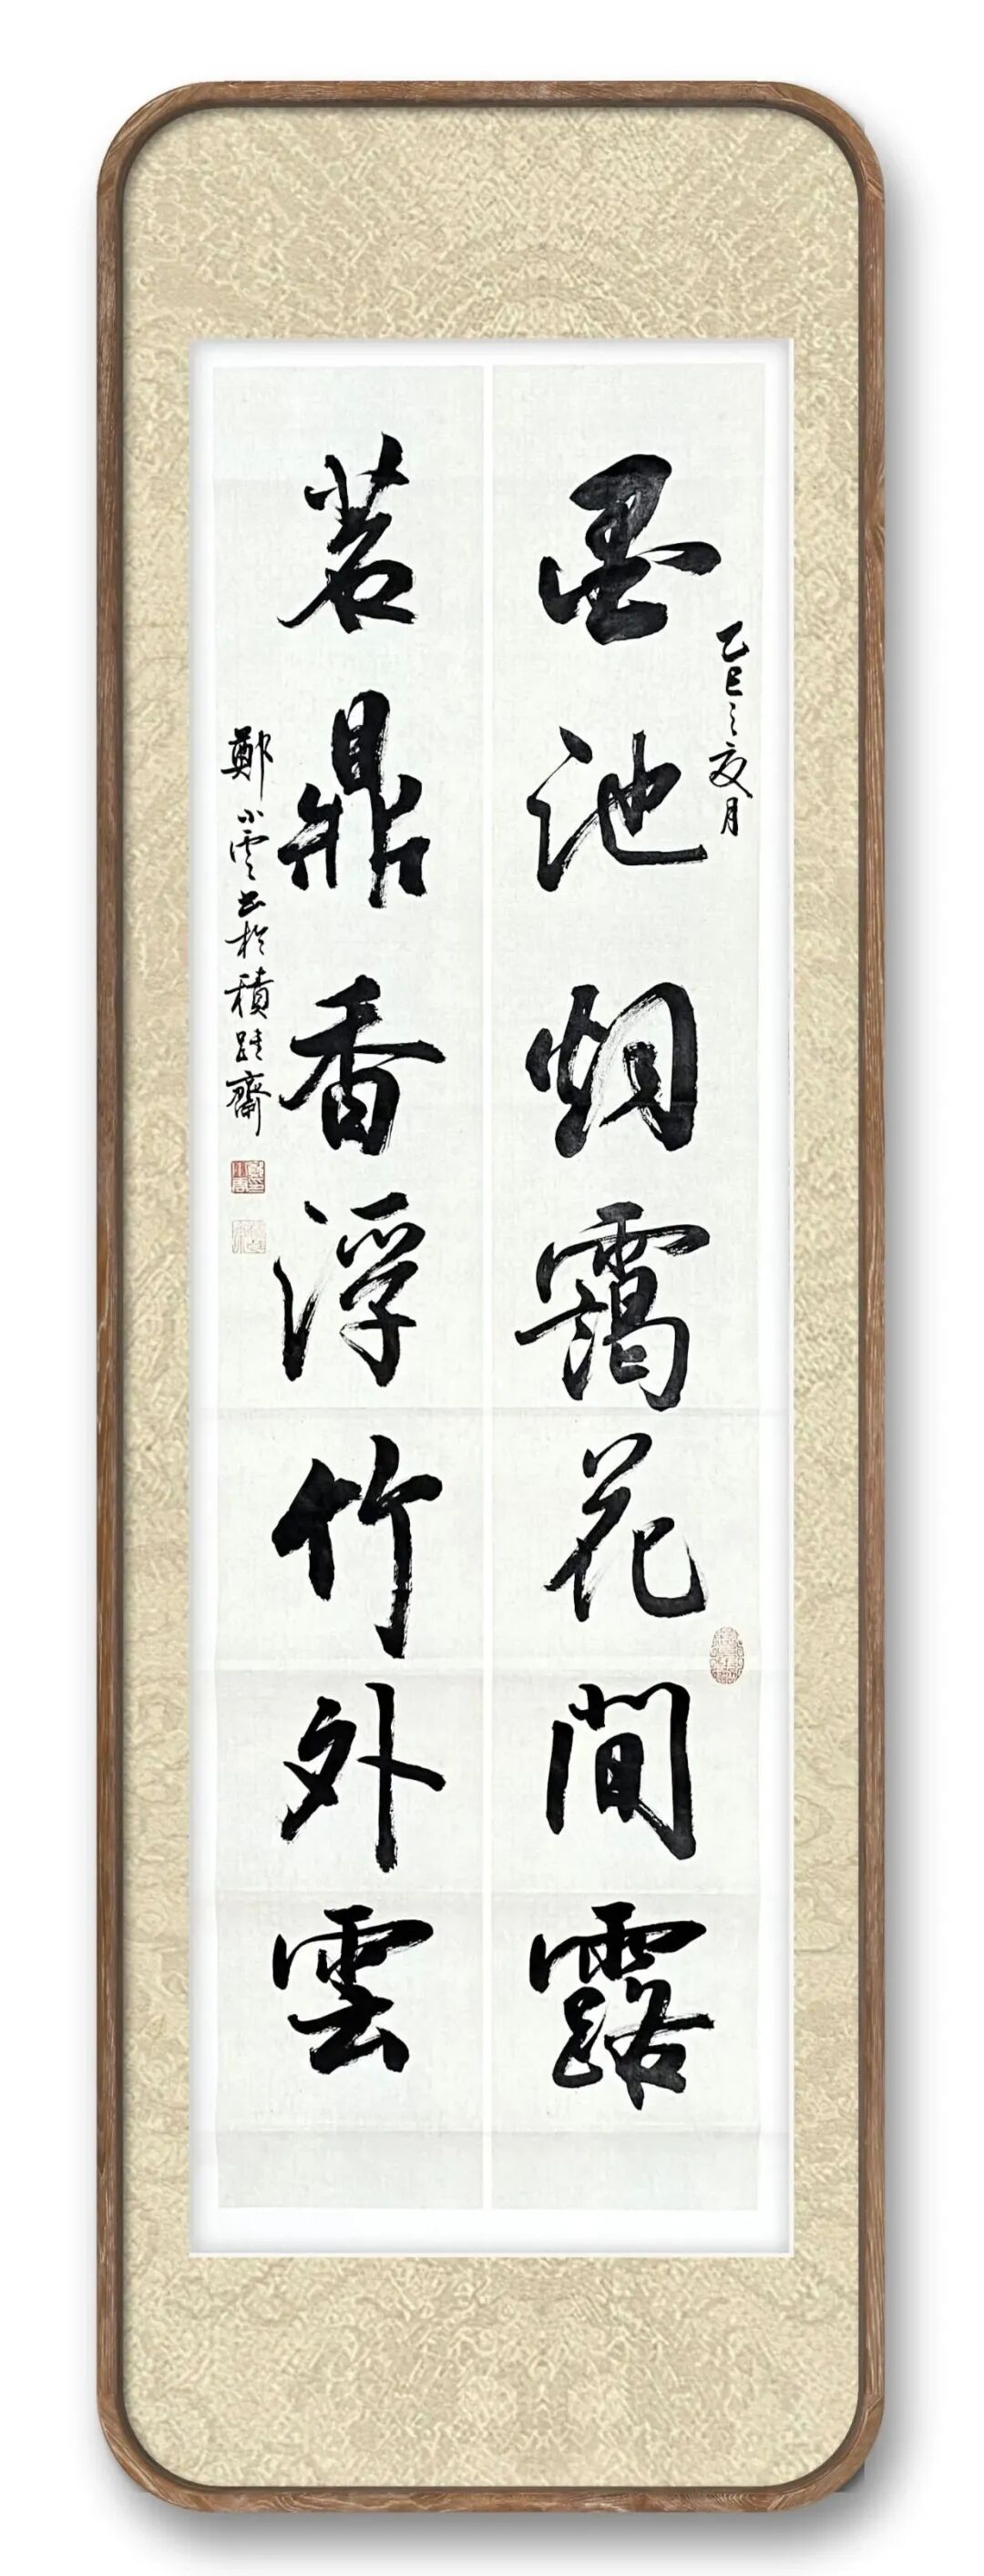 乙巳之夏月
墨池烟靄花間露
茗鼎香浮竹外雲
鄭小雲书於積跬齋